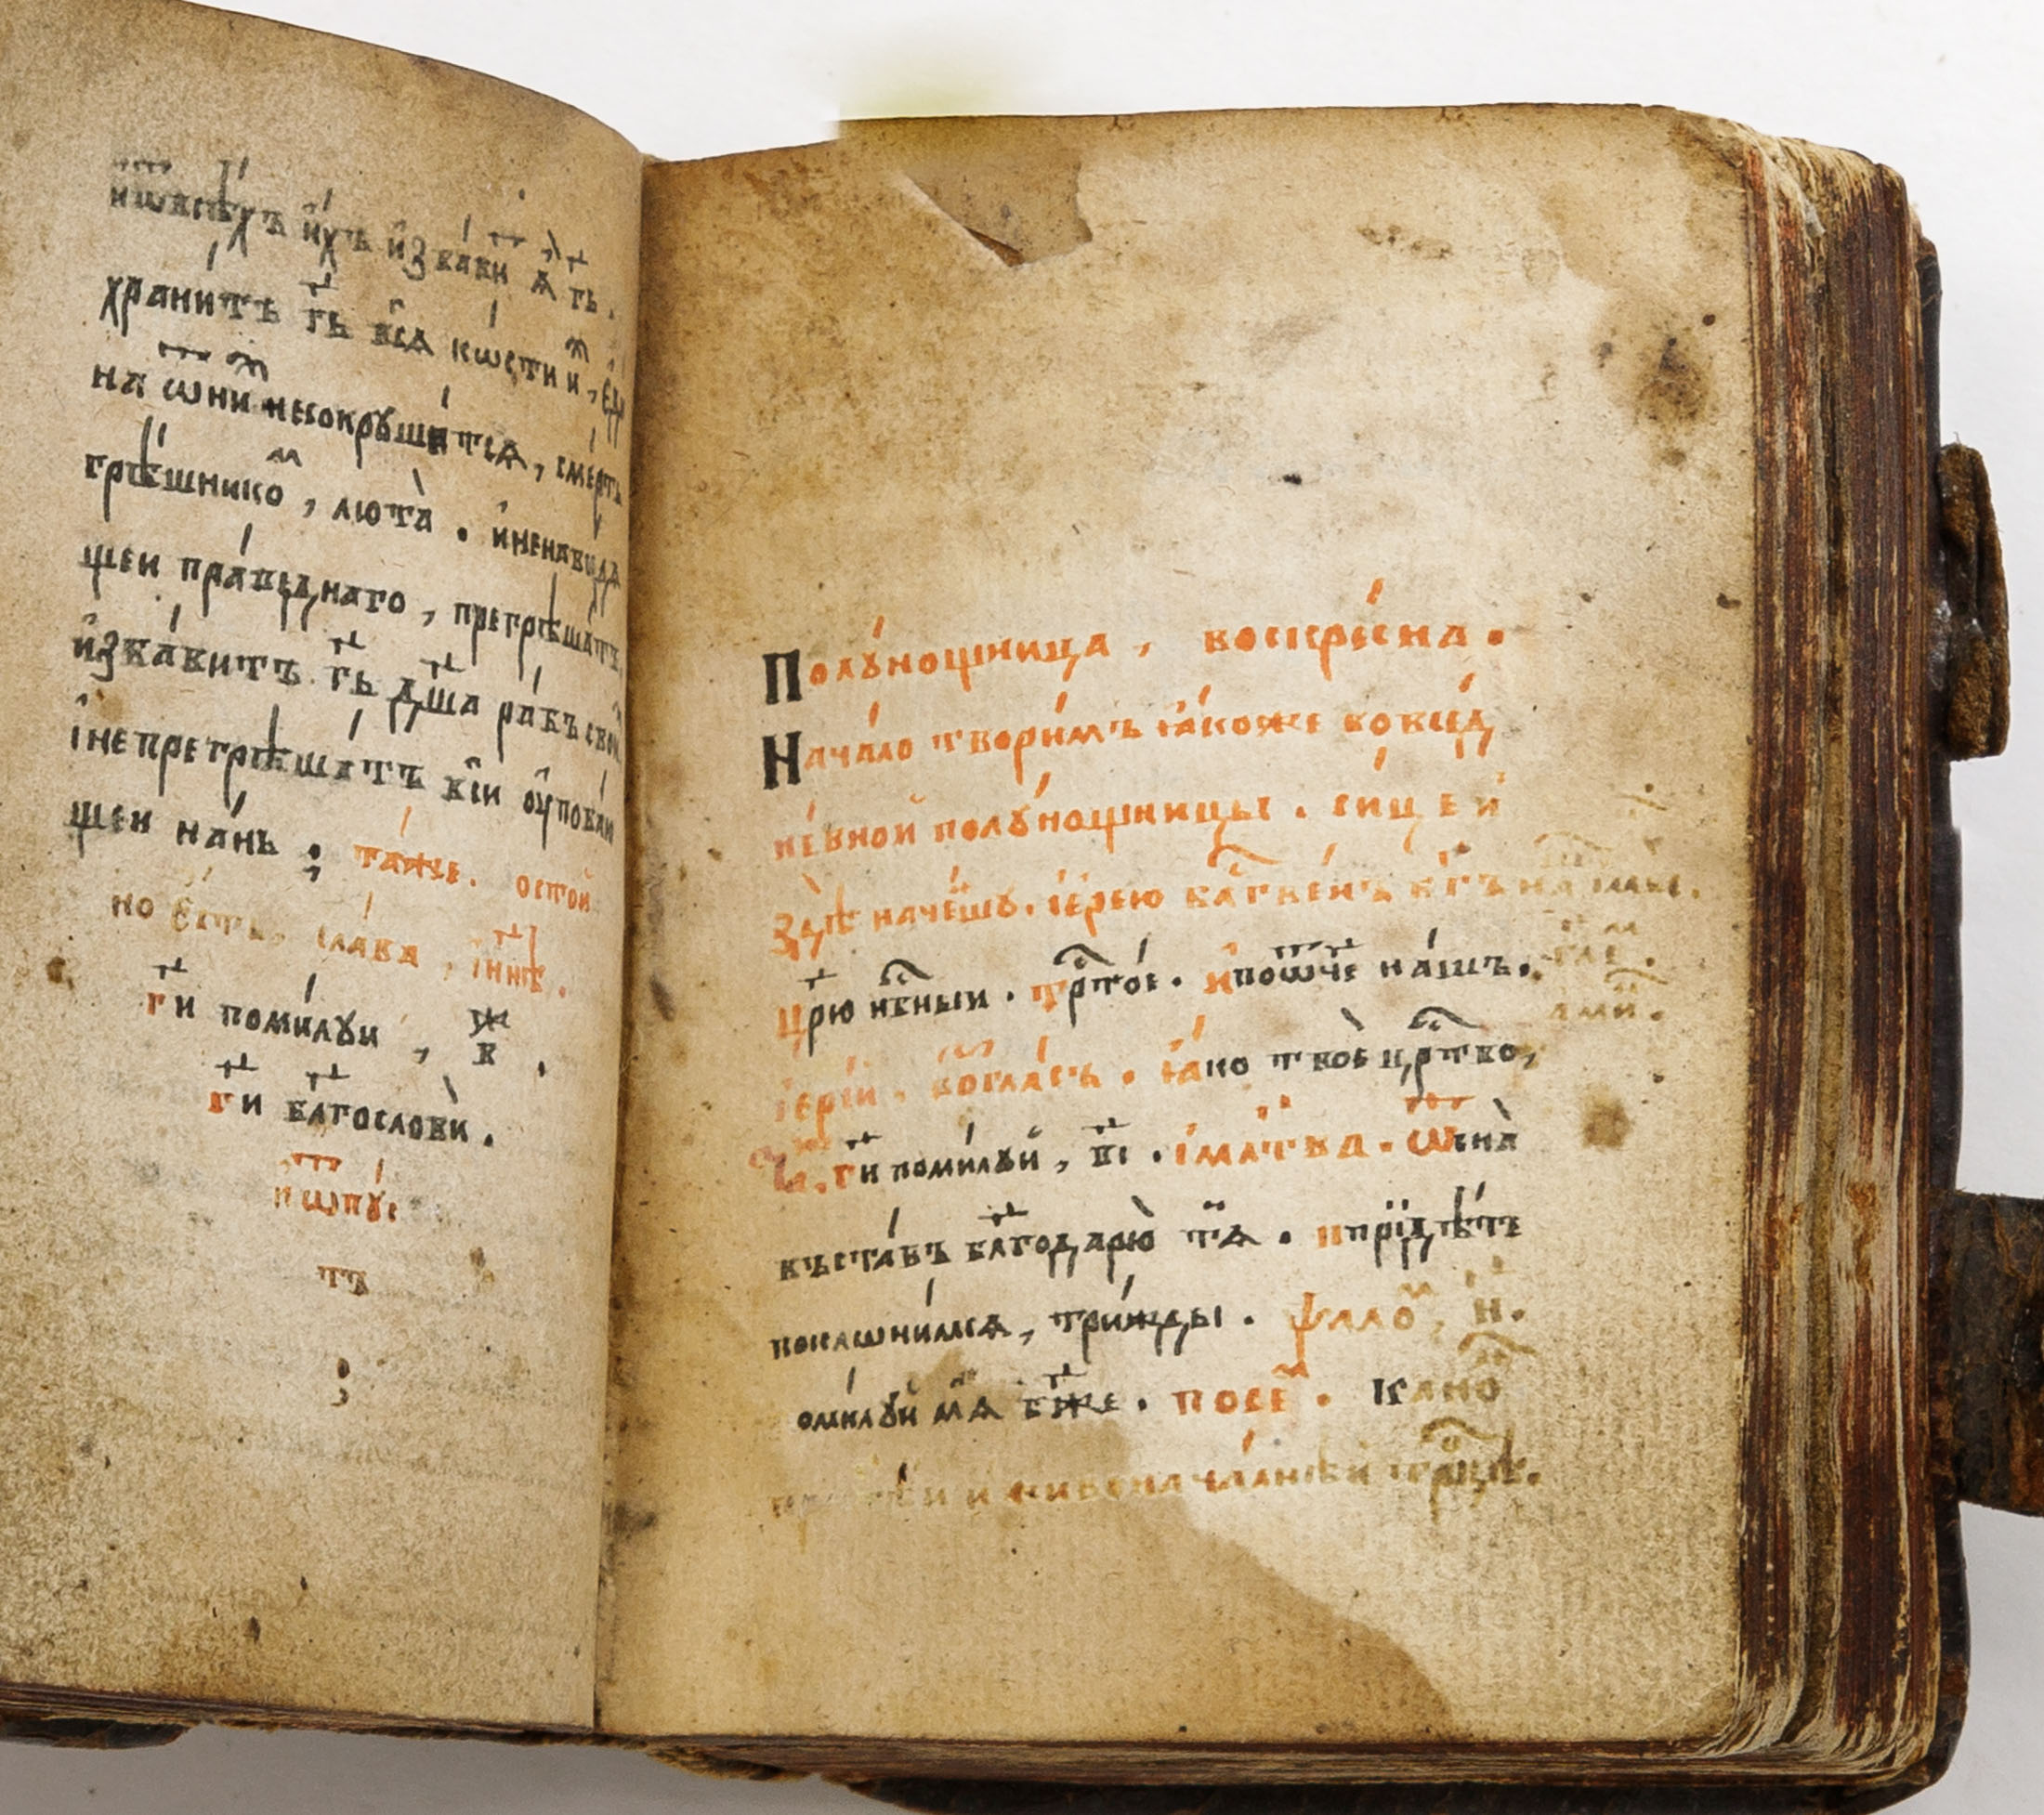 и҆ѿвсѣ́хъ и҆́хъ и҆зба́ви ѧ҆̀ гь҃.
храни́тъ гь҃ всѧ̑ кѡ́сти и҆хⷯ, є҆ди́
на ѿ ниⷯ несокрꙋши́тсѧ, сме́рть
грѣ́шникоⷨ, люта̀. и҆ненави́дѧ
щеи пра́веднаго, прегрѣша́тъ.
и҆зба́витъ гь҃ дш҃а ра́бъ свои́ⷯ
і҆непрегрѣша́тъ всѝ ᲂу҆пова́ю
щеи на́нь ; та́же. осто́й
но є҆́сть, сла́ва, і҆ нн҃ѣ.
ги҃ поми́лꙋи, в҃ⷤ.
ги҃ бл҃гословѝ.
и҆ ѿпꙋ́с
тъ
;
Полꙋ́нощница, воскре́сна.
Нача́ло твори́мъ ꙗ҆́коже вовсед
не́вной полꙋ́нощницы. си́це и҆
здѣ̀ наче́нш꙽ꙋ. і҆ере́ю блⷭ҇ве́нъ бг҃ъ на́шъ.
гл҃еⷨ.
ами́нь.
Цр҃ю нбⷭ҇ныи. трⷭ҇то́е. и҆поѿч҃е на́шъ.
і҆ере́й. во́згла́съ. ꙗ҆́ко твоѐ црⷭ҇тво,
ги҃ поми́лꙋй, в҃і. і҆ мл҃тва. ѿ сна̀
въста́въ бл҃годарю̀ тѧ̀. и прїидѣ́те
поклони́мсѧ, три́жды. ѱало́ⷨ, н҃.
омилꙋй мѧ̀ бж҃е. посе́ⷨ. Кано́ⷩ
и живонача́лнѣй трⷪ҇цѣ.